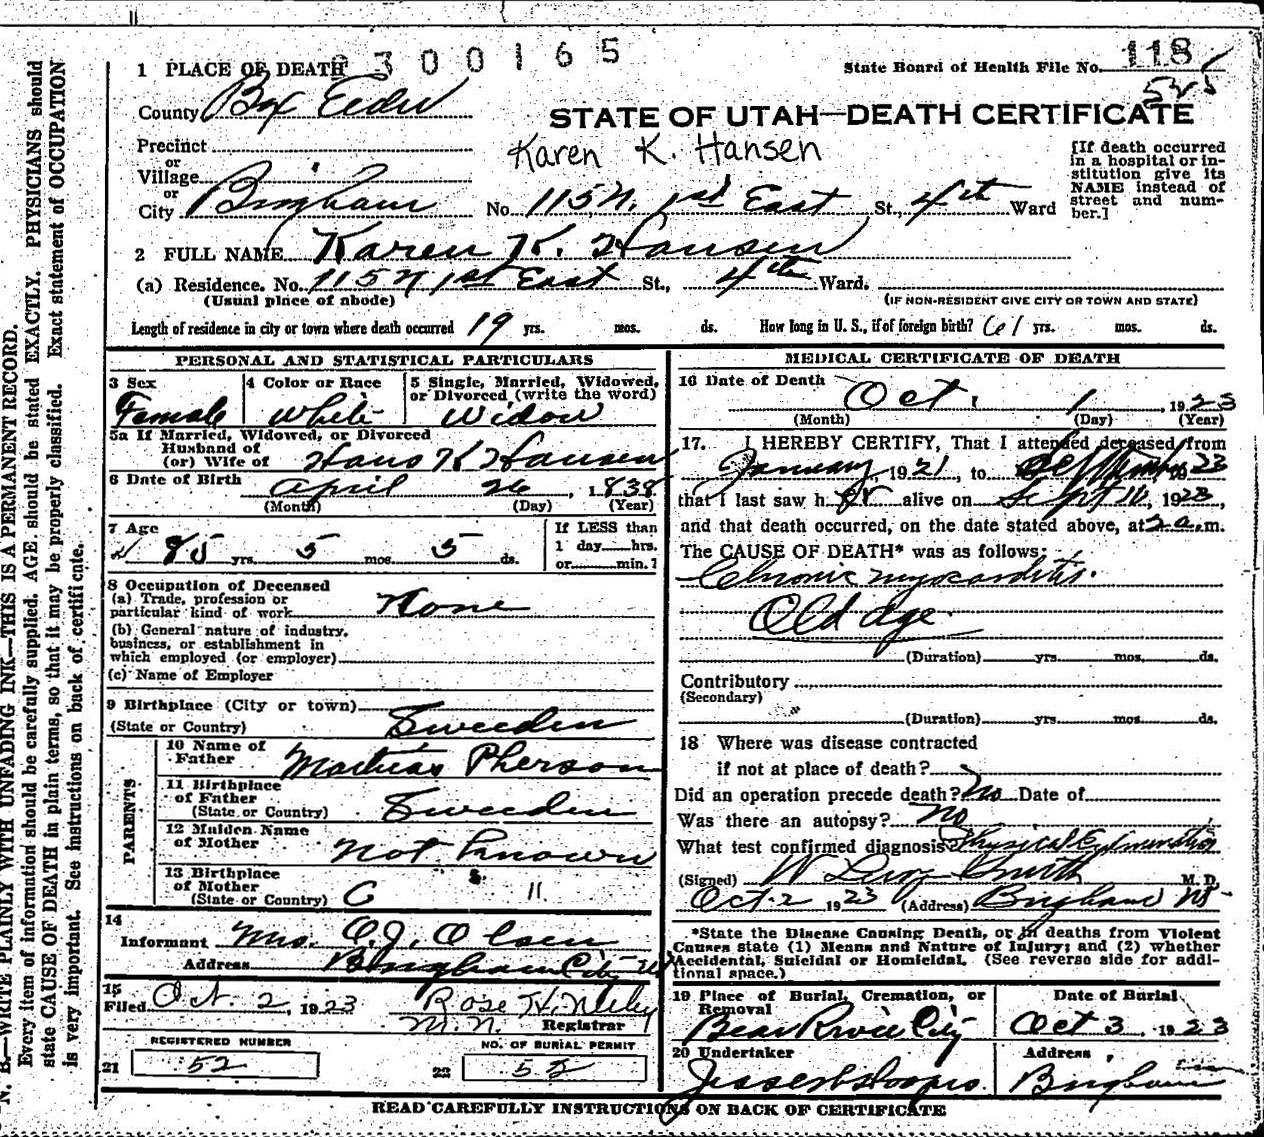 2300165
118
525
1 PLACE OF DEATH
State Board of Health File No.
County Box Elder
STATE OF UTAH—DEATH CERTIFICATE
Karen K. Hansen
Precinct
or
Village
or
City Brigham
No. 115 N. 1st East St., 4th Ward
[If death occurred in a hospital or institution give its NAME instead of street and number.]
2 FULL NAME Karen K. Hansen
(a) Residence. No. 115 N 1st East St., 4th Ward.
(Usual place of abode)
(IF NON-RESIDENT GIVE CITY OR TOWN AND STATE)
Length of residence in city or town where death occurred 19 yrs. mos. ds. How long in U. S., if of foreign birth? 61 yrs. mos. ds.
PERSONAL AND STATISTICAL PARTICULARS
3 Sex Female
4 Color or Race White
5 Single, Married, Widowed, or Divorced (write the word) Widow
5a If Married, Widowed, or Divorced
Husband of
(or) Wife of Hans K Hansen
6 Date of Birth April 26, 1838
(Month) (Day) (Year)
7 Age 85 yrs. 5 mos. 5 ds.
If LESS than
1 day hrs.
or min.?
8 Occupation of Deceased
(a) Trade, profession or
particular kind of work None
(b) General nature of industry,
business, or establishment in
which employed (or employer)
(c) Name of Employer
9 Birthplace (City or town)
(State or Country) Sweeden
PARENTS
10 Name of
Father Mathias Pherson
11 Birthplace
of Father
(State or Country) Sweeden
12 Maiden Name
of Mother Not Known
13 Birthplace
of Mother
(State or Country) "
14
Informant Mrs. O. J. Olsen
Address Bingham City
15
Filed Oct. 2, 1923 Rose H.
Registrar
REGISTERED NUMBER
21 52
NO. OF BURIAL PERMIT
22 52
MEDICAL CERTIFICATE OF DEATH
16 Date of Death Oct. 1, 1923
(Month) (Day) (Year)
17. I HEREBY CERTIFY, That I attended deceased from
January, 1921, to September 1923
that I last saw her alive on Sept 10, 1923,
and that death occurred, on the date stated above, at 2 a.m.
The CAUSE OF DEATH* was as follows:
Chronic myocarditis.
Old age
(Duration) yrs. mos. ds.
Contributory
(Secondary)
(Duration) yrs. mos. ds.
18 Where was disease contracted
if not at place of death?
Did an operation precede death? No Date of
Was there an autopsy? No
What test confirmed diagnosis Physical Examination
(Signed) W Leroy Smith M. D.
Oct. 2 1923 (Address) Brigham
*State the Disease Causing Death, or in deaths from Violent
Causes state (1) Means and Nature of Injury; and (2) whether
Accidental, Suicidal or Homicidal. (See reverse side for addi-
tional space.)
19 Place of Burial, Cremation, or
Removal Bear River City
Date of Burial
Oct 3 1923
20 Undertaker
Address
Brigham
READ CAREFULLY INSTRUCTIONS ON BACK OF CERTIFICATE
N. B.—WRITE PLAINLY WITH UNFADING INK—THIS IS A PERMANENT RECORD.
Every item of information should be carefully supplied. AGE should be stated EXACTLY. PHYSICIANS should
state CAUSE OF DEATH in plain terms, so that it may be properly classified. Exact statement of OCCUPATION
is very important. See instructions on back of certificate.